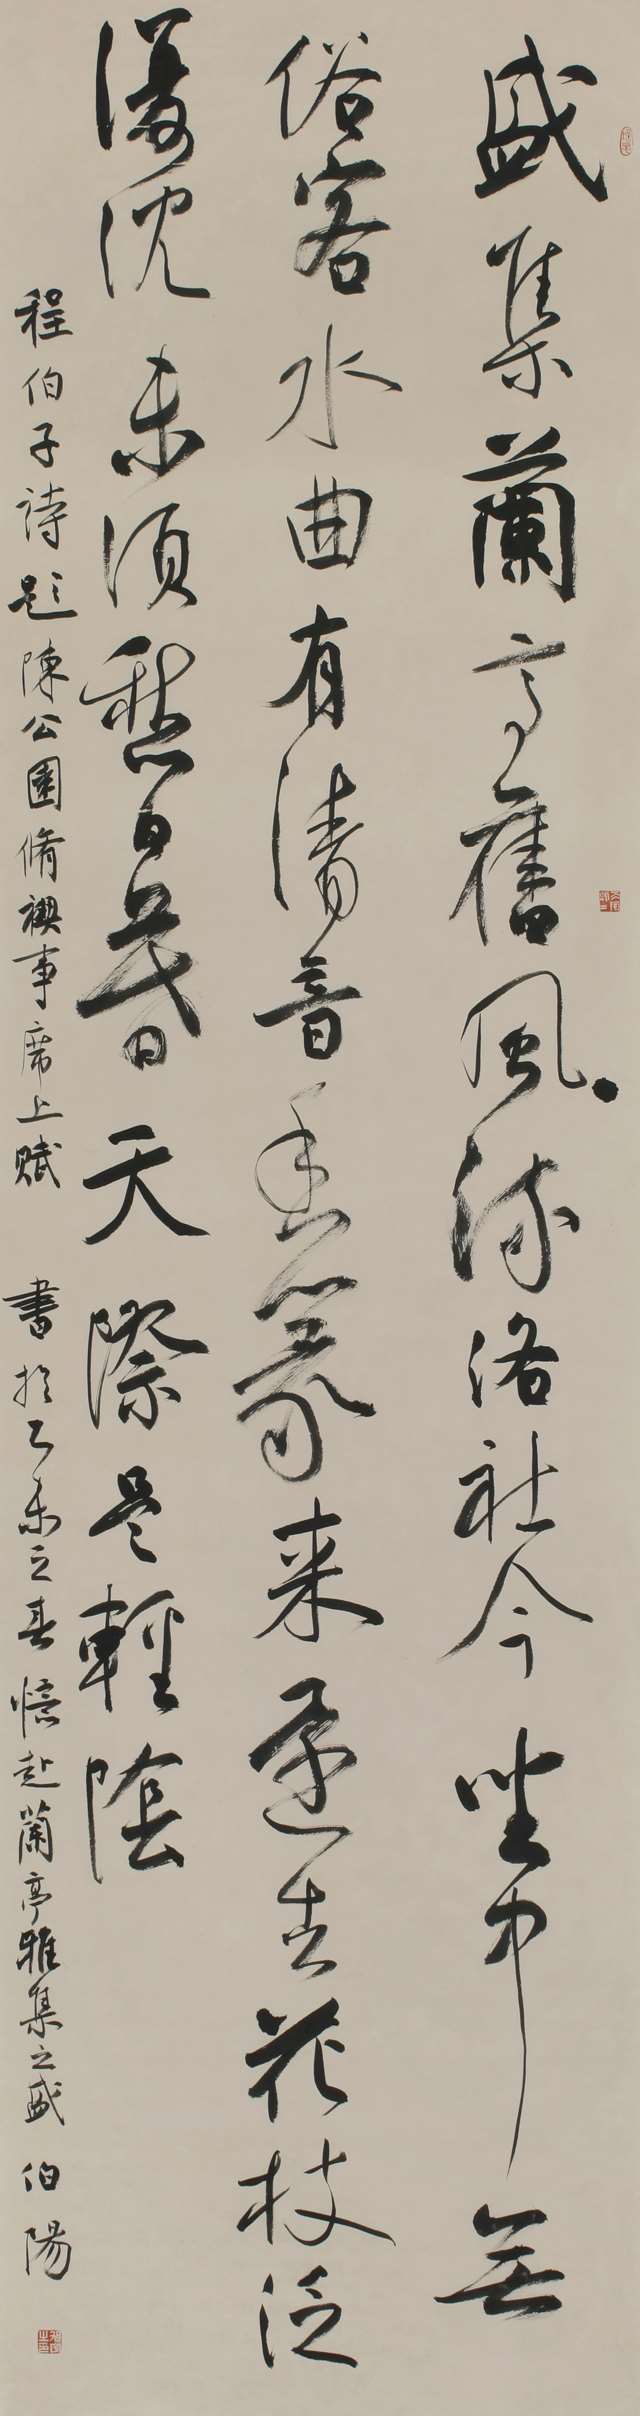 盛集蘭亭舊風流洛社今坐中無
俗客水曲有清音香篆来還去花枝泛
復沈未須愁日暮天際是輕陰
程伯子詩題陳公園脩禊事席上賦 書於乙未之春憶赴蘭亭雅集之盛 伯陽